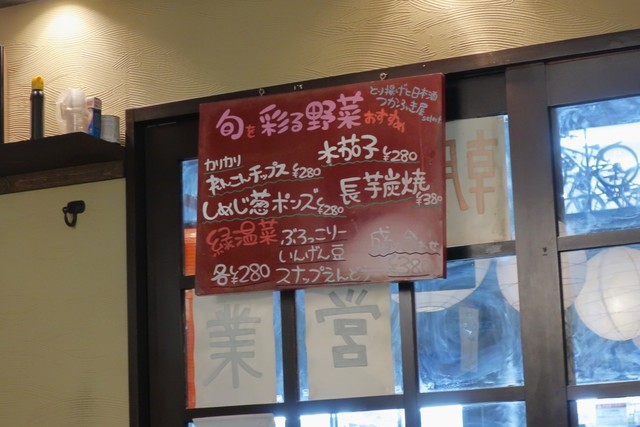 旬を彩る野菜
おすすめ
とり揚げと日本酒
つかふき屋
select
水茄子 ¥280
カリカリ
れんこんチップス ¥280
しめじ葱ポンズ ¥280
長芋炭焼 ¥380
緑温菜 ぶろっこりー
いんげん豆
スナップえんどう
各¥280
盛合わせ
¥380
朝
営
業